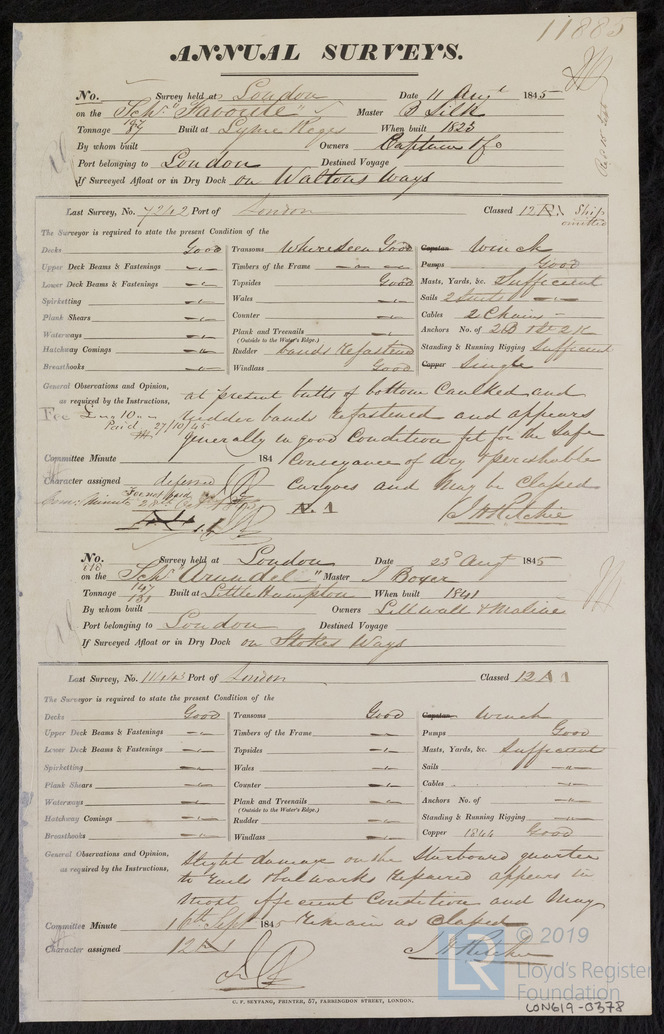 11885
ANNUAL SURVEYS.
No. Survey held at London Date 11 Augt 1845
on the Schr "Favorite" Master B Silk
Tonnage 87 Built at Lyme Regis When built 1823
By whom built Owners Captain & Co
Port belonging to London Destined Voyage
If Surveyed Afloat or in Dry Dock on Waltons Ways
Last Survey, No. 7242 Port of London Classed 12 Ship omitted
The Surveyor is required to state the present Condition of the
Decks Good Transoms Where seen Good Capstan Winch
Upper Deck Beams & Fastenings Timbers of the Frame Pumps Good
Lower Deck Beams & Fastenings Topsides Good Masts, Yards, &c. Sufficient
Spirketting Wales Sails 2 Suits
Plank Shears Counter Cables 2 Chain
Waterways Plank and Treenails Anchors No. of
(Outside to the Water's Edge.)
Hatchway Comings Rudder bands Refastened Standing & Running Rigging Sufficient
Breasthooks Windlass Good Copper Single
General Observations and Opinion, at present butts of bottom Caulked and
as required by the Instructions, rudder bands refastened and appears
Fee £ 10 Paid 27/10/45
generally in good Condition fit for the Safe
Committee Minute 184 Conveyance of dry & perishable
Character assigned deferred Cargoes and May be Classed
Fee not paid
Com: Minute 28th Oct 1845
Æ.1 J H Ritchie
No. Survey held at London Date 23d Augt 1845
on the Schr "Arundel" Master J Boxer
Tonnage 147 131 Built at Little Hampton When built 1841
By whom built Owners
Port belonging to London Destined Voyage
If Surveyed Afloat or in Dry Dock on Stokes Ways
Last Survey, No. Port of London Classed 12 A 1
The Surveyor is required to state the present Condition of the
Decks Good Transoms Good Capstan Winch
Upper Deck Beams & Fastenings Timbers of the Frame Pumps Good
Lower Deck Beams & Fastenings Topsides Masts, Yards, &c. Sufficient
Spirketting Wales Sails
Plank Shears Counter Cables
Waterways Plank and Treenails Anchors No. of
(Outside to the Water's Edge.)
Hatchway Comings Rudder Standing & Running Rigging
Breasthooks Windlass Copper 1844 Good
General Observations and Opinion, Slight damage on the Starboard quarter
as required by the Instructions, to rails & bulwarks Repaired appears in
most efficient Condition and May
Committee Minute 16th Sept 1845 Remain as Classed
Character assigned 12 A 1 J H Ritchie
C. F. SEYFANG, PRINTER, 57, FARRINGDON STREET, LONDON.
LR © 2019
Lloyd's Register
Foundation
LON619-0378